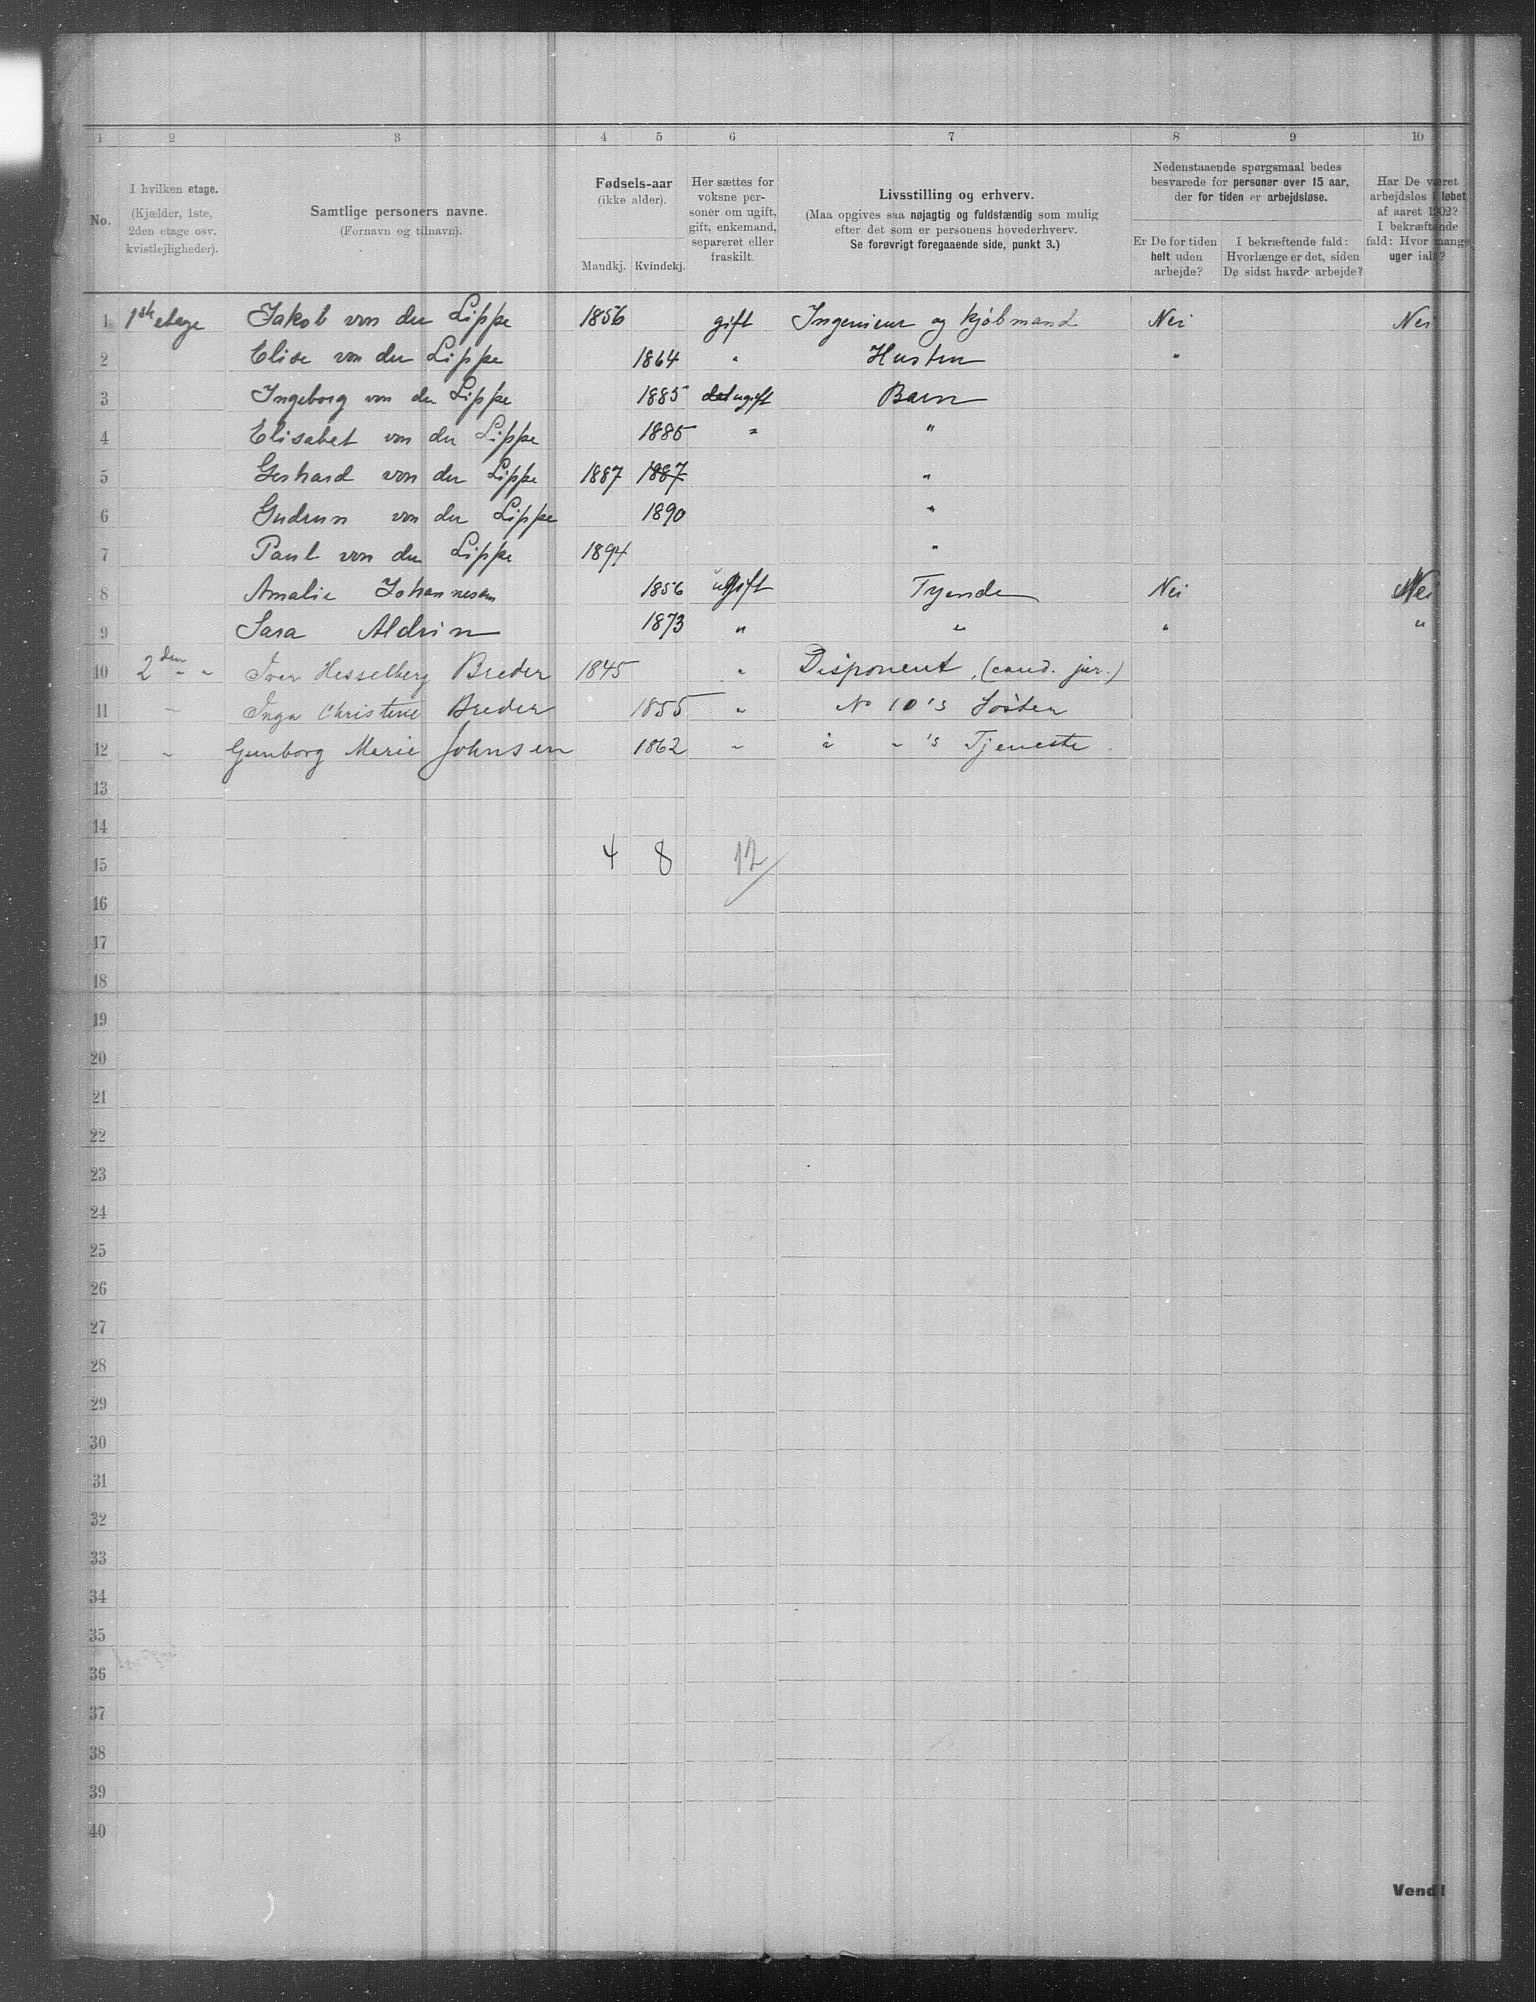 1 2 3 4 5 6 7 8 9 10
No.
I hvilken etage.
(Kjælder, 1ste,
2den etage osv.
kvistlejligheder).
Samtlige personers navne.
(Fornavn og tilnavn).
Fødsels-aar
(ikke alder).
Mandkj. Kvindekj.
Her sættes for
voksne per-
soner om ugift,
gift, enkemand,
separeret eller
fraskilt.
Livsstilling og erhverv.
(Maa opgives saa nøjagtig og fuldstændig som mulig
efter det som er personens hovederhverv.
Se forøvrigt foregaaende side, punkt 3.)
Nedenstaaende spørgsmaal bedes
besvarede for personer over 15 aar,
der for tiden er arbejdsløse.
Er De for tiden
helt uden
arbejde?
I bekræftende fald:
Hvorlænge er det, siden
De sidst havde arbejde?
Har De været
arbejdsløs i løbet
af aaret 1902?
I bekræftende
fald: Hvor mange
uger ialt?
1 1ste etage Jakob von der Lippe 1856 gift Ingeniør og kjøbmand Nei Nei
2 Elise von der Lippe 1864 " Hustru "
3 Ingeborg von der Lippe 1885 ugift Barn
4 Elisabet von der Lippe 1885 " "
5 Gerhard von der Lippe 1887 1887 "
6 Gudrun von der Lippe 1890 "
7 Paul von der Lippe 1894 "
8 Amalie Johannesen 1856 ugift Tyende Nei Nei
9 Sara Aldrin 1873 " " " "
10 2den " " Iver Hesselberg Breder 1845 " Disponent, (cand. jur.)
11 " Inga Christine Breder 1855 " No 10's Søster
12 " Gunborg Marie Johnsen 1862 " " "'s Tjeneste.
13
14
15 4 8 12
16
17
18
19
20
21
22
23
24
25
26
27
28
29
30
31
32
33
34
35
36
37
38
39
40
Vend!